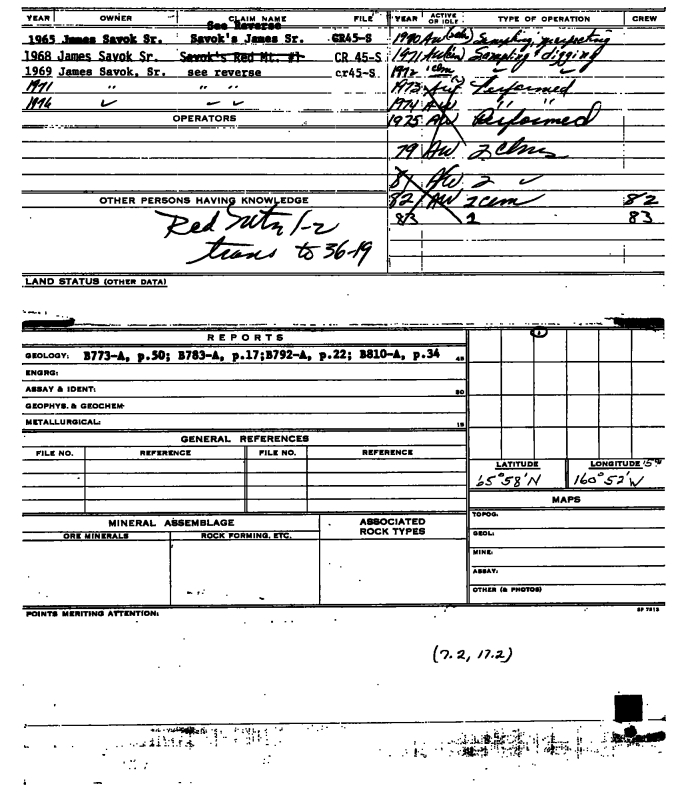 YEAR OWNER CLAIM NAME FILE YEAR ACTIVE OR IDLE. TYPE OF OPERATION CREW
See Reverse
1965 James Savok Sr. Savok's James Sr. CR45-S 1970 AW Sampling prospecting
1968 James Savok Sr. Savok's Red Mt. #1 CR 45-S 1971 Sampling & digging
1969 James Savok, Sr. see reverse cr45-S 1972 " clm ✓ ✓
1971 " " " 1973 AW Performed
1976 ✓ ✓ ✓ 1974 AW " "
OPERATORS 1975 AW Performed
79 AW 2 clms
81 AW 2 ✓
OTHER PERSONS HAVING KNOWLEDGE 82 AW 2 82
83 1 83
Red Mtn 1-2
trans to 36-19
LAND STATUS (OTHER DATA)
REPORTS
GEOLOGY: B773-A, p.50; B783-A, p.17;B792-A, p.22; B810-A, p.34 45
ENGRG:
ASSAY & IDENT: 30
GEOPHYS. & GEOCHEM:
METALLURGICAL: 15
GENERAL REFERENCES
FILE NO. REFERENCE FILE NO. REFERENCE
1
LATITUDE LONGITUDE 15"
65°58'N 160°52'W
MAPS
TOPOG.
GEOL:
MINE:
ASSAY:
OTHER (& PHOTOS)
MINERAL ASSEMBLAGE ASSOCIATED ROCK TYPES
ORE MINERALS ROCK FORMING, ETC.
POINTS MERITING ATTENTION:
(7.2, 17.2)